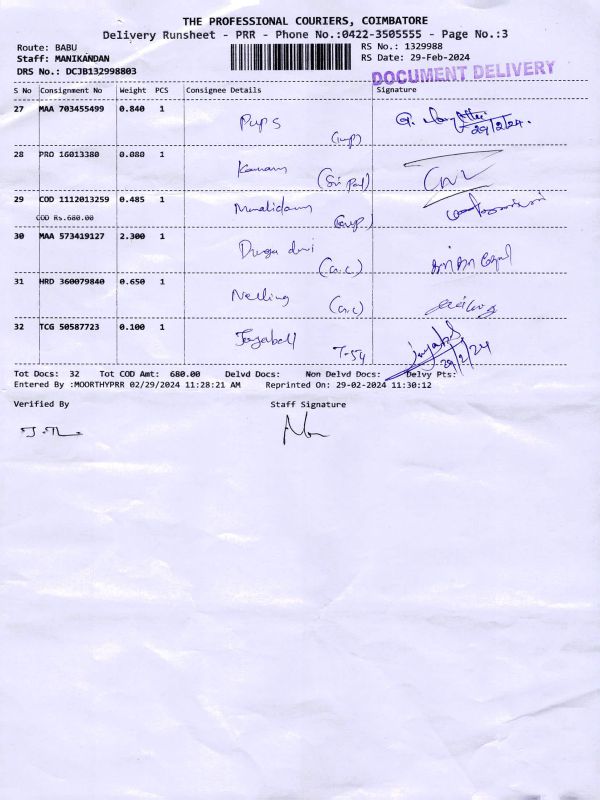 THE PROFESSIONAL COURIERS, COIMBATORE
Delivery Runsheet - PRR - Phone No.:0422-3505555 - Page No.:3
Route: BABU
RS No.: 1329988
Staff: MANIKANDAN
RS Date: 29-Feb-2024
DRS No.: DCJB132998803
DOCUMENT DELIVERY
S No Consignment No Weight PCS Consignee Details Signature
27 MAA 703455499 0.840 1 Pups
29/2/24.
28 PRO 16013380 0.080 1
29 COD 1112013259 0.485 1
COD Rs.680.00
30 MAA 573419127 2.300 1 Durga devi
31 HRD 360079840 0.650 1
32 TCG 50587723 0.100 1
T-54
29/2/24
Tot Docs: 32 Tot COD Amt: 680.00 Delvd Docs: Non Delvd Docs: Delvy Pts:
Entered By :MOORTHYPRR 02/29/2024 11:28:21 AM Reprinted On: 29-02-2024 11:30:12
Verified By Staff Signature